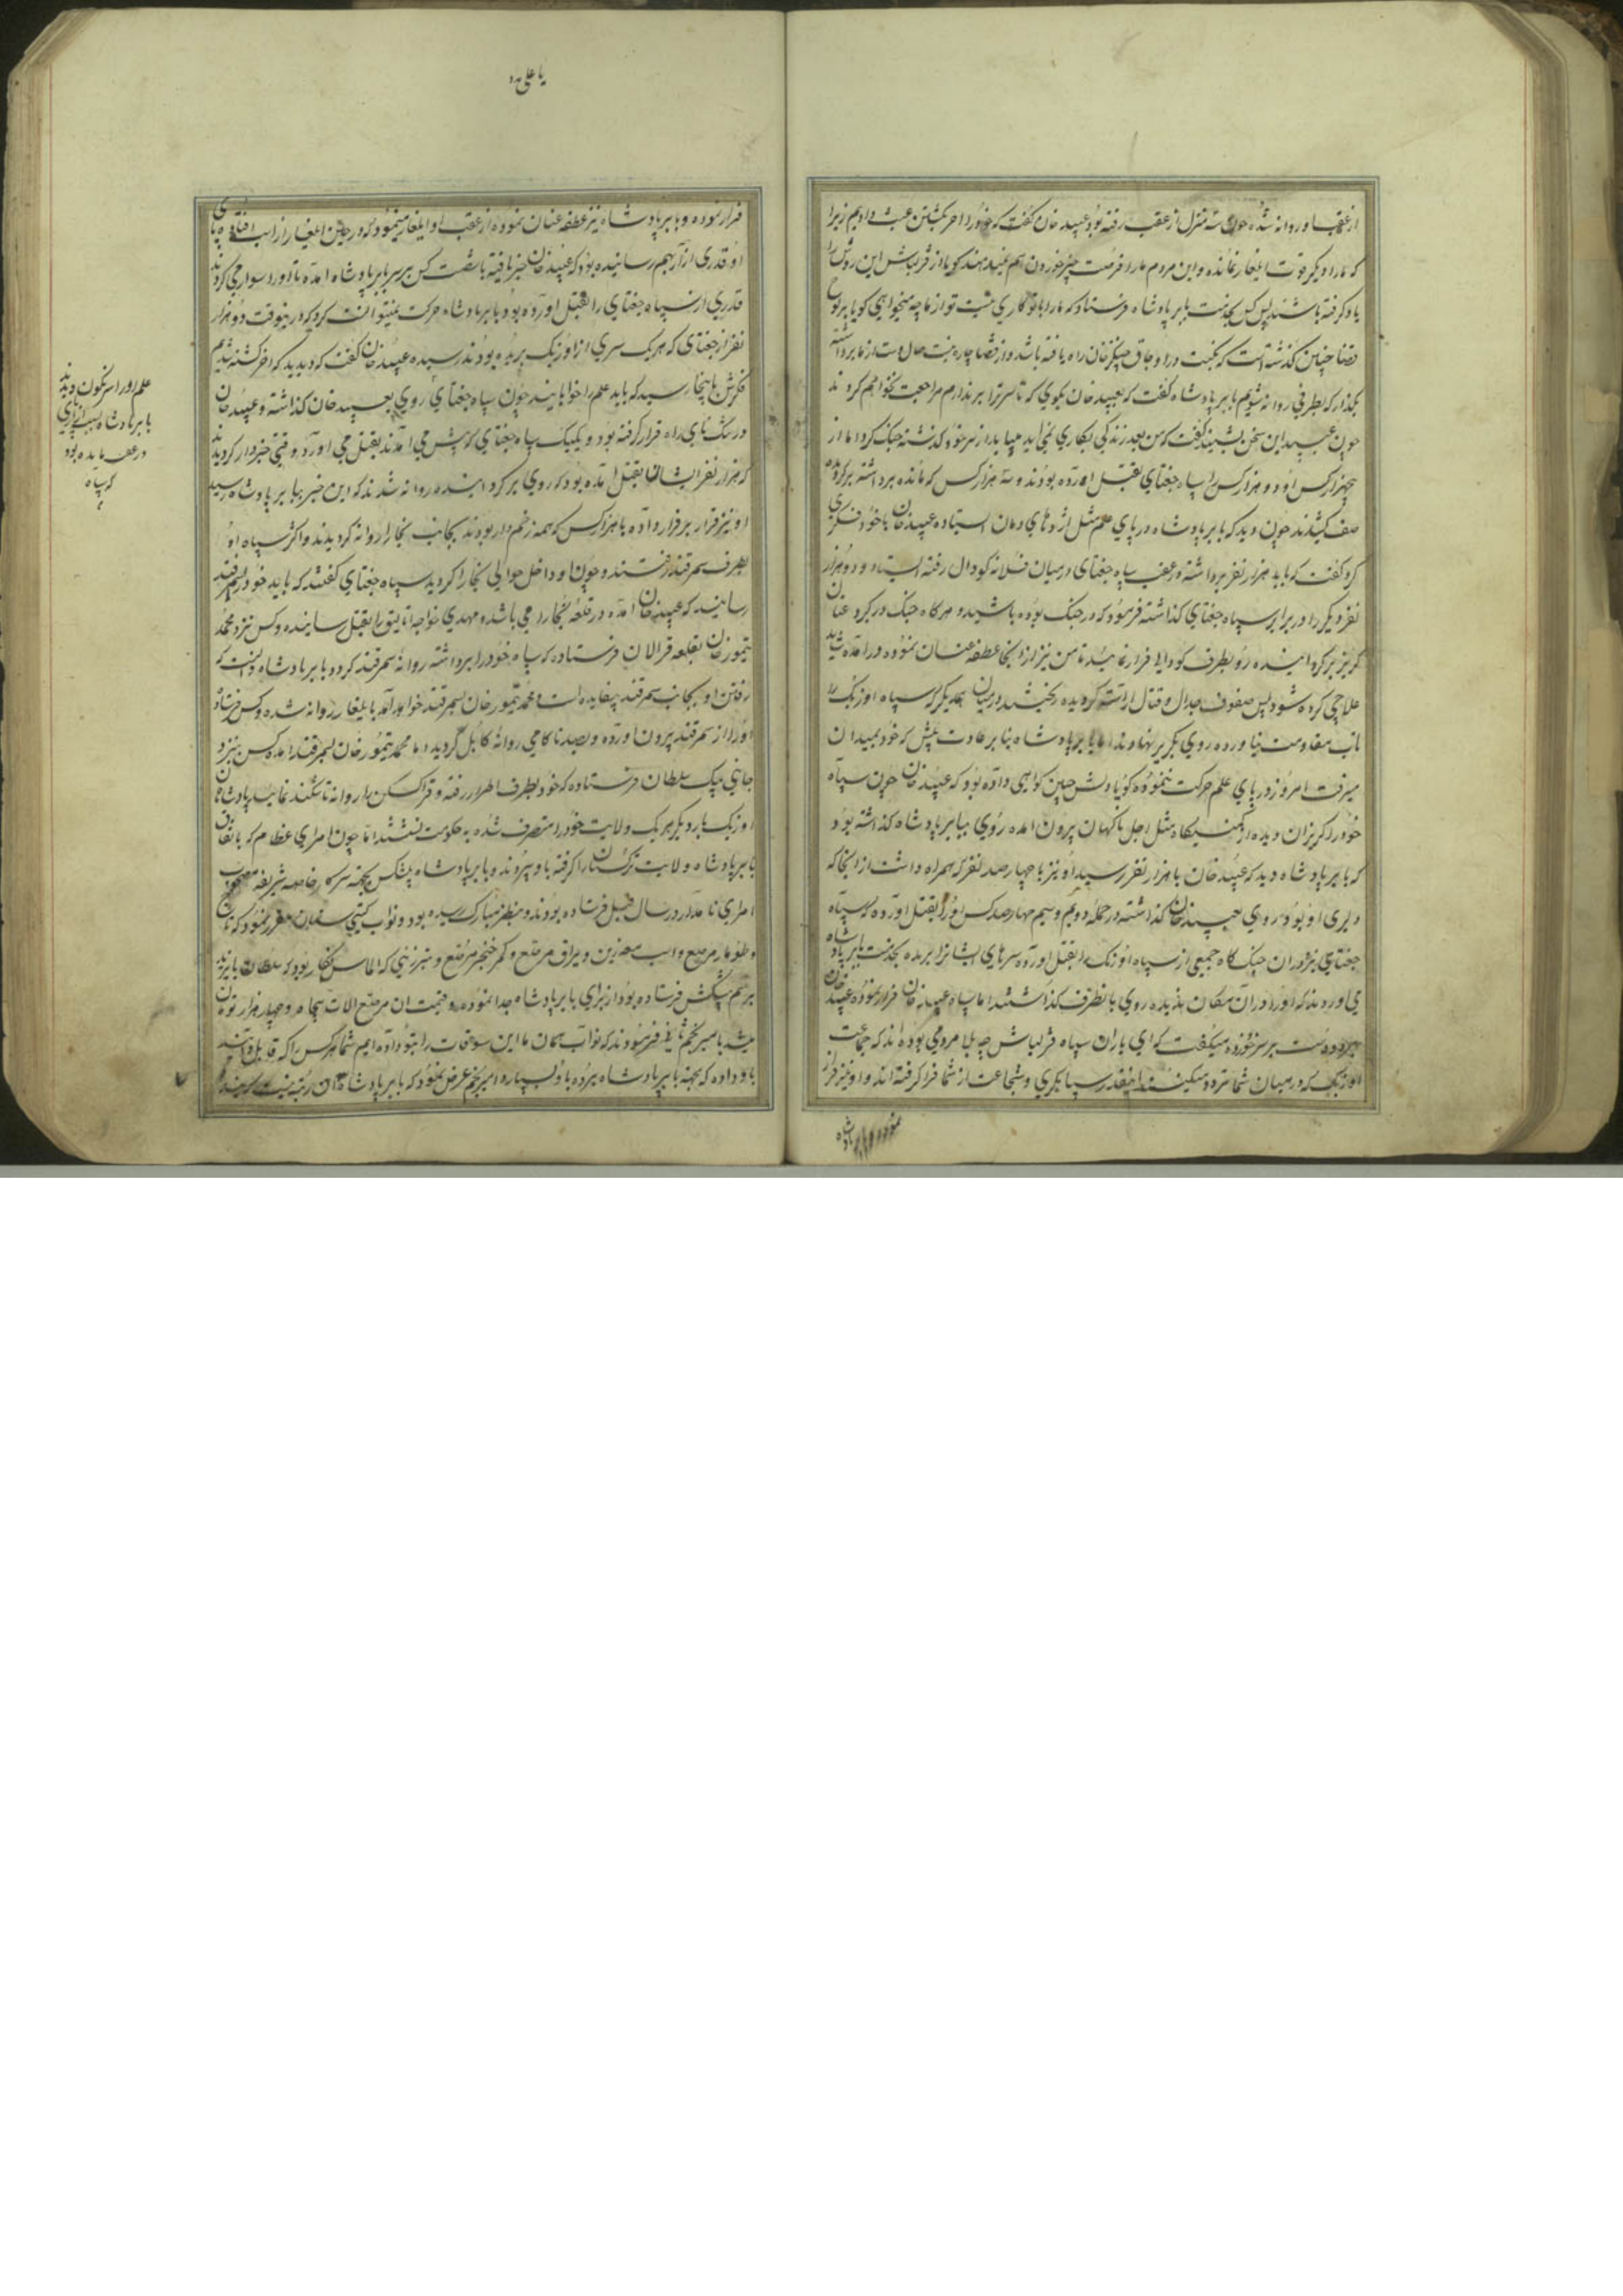 از عقب او روانه شده حوالی سه منزل از عقب رفته بود عبید خان گفت که خود را آخر بکشتن عبث دادیم زیرا
که ما را دیگر قوت ایلغار نمانده و این مردم ما را فرصت چیز خوردن هم نمیدهند گویا از قزلباش این روش را
یاد گرفته باشند پس کس بخدمت بابر پادشاه فرستاد که ما را با تو کاری نیست تو از ما چه میخواهی گویا بر لوح
قضا چنین گذشته است که نکبت در اوجاق چنگیز خان راه یافته باشد و از قضا چاره نیست حال دست از ما برداشته
بگذار که بطرفی روانه شویم بابر پادشاه گفت که بعبید خان بگوی که تا سر ترا بر ندارم مراجعت نخواهم کرد
چون عبید این سخن بشنید گفت که من بعد زندگی بکاری نمی آید بیا یاران از سر خود گذشته جنگ کرد اما از
چهار هزار کس او دو هزار کس را سپاه جغتای بقتل آورده بودند و سه هزار کس که مانده برداشته برگردیده
صف کشیدند چون دید که بابر پادشاه در پای علم مثل اژدهای دمان ایستاده عبید خان با خود فکری
کرد گفت که باید هزار نفر برداشته در عقب سپاه جغتای در میان فلانه گودال رفته ایستاد و دو هزار
نفر دیگر را در برابر سپاه جغتای گذاشته فرمود که در جنگ بوده باشید و هرگاه جنگ در گیرد عنان
گریز برگردانیده رو بطرف گودال فرار نمائید تا من نیز از آنجا عطفه عنان نموده در آمده شاید
علاجی کرده شود پس صفوف جدال و قتال آراسته گردیده ریختند در میان یکدیگر سپاه اوزبک را
تاب مقاومت نیاورده روی بگریز نهادند اما بابر پادشاه بنا بر عادت پیش که خود بمیدان
میرفت امروز در پای علم حرکت ننموده گویا دلش چنین گواهی داده بود که عبید خان چون سپاه
خود را گریزان دیده از کمینگاه مثل اجل ناگهان بیرون آمده روی ببابر پادشاه گذاشته بود
که بابر پادشاه دید که عبید خان با هزار نفر رسید او نیز با چهار صد نفر که همراه داشت از آنجا که
دلیری او بود روی بعبید خان گذاشته در حمله دویم و سیم چهار صد کس او را بقتل آورده که سپاه
جغتای نیز در آن جنگ گاه جمعی از سپاه اوزبک را بقتل آورده سرهای ایشانرا بریده بخدمت بابر پادشاه
می آوردند که او را در آن مکان ندیده روی بآنطرف گذاشتند اما سپاه عبید خان فرار نموده عبید خان
دو دست بر سر خود زده میگفت که ای یاران سپاه قزلباش چه بلا مردمی بوده اند که جماعت
اوزبک که در میان شما تردد میکنند اینقدر سپاهیگری و شجاعت از شما فرا گرفته اند و او نیز فرار
نموده و بابر پادشاه
یا علی مدد
فرار نموده و بابر پادشاه نیز عطفه عنان نموده از عقب او ایلغار مینمود که در حین ایلغار از اسب افتاده پای
او قدری از هم رسانیده بود که عبید خان خبر یافته با شصت کس بر سر بابر پادشاه آمده تا او را سوار می کردند
قدری از سپاه جغتای را بقتل آورده بود بابر پادشاه حرکت نمیتوانست کرد که در اینوقت دو هزار
نفر از جغتای که هر یک سری از اوزبک بریده بودند رسیده عبید خان گفت که دیدید که آخر کشته شدیم
فکرش باینجا رسید که باید علم را خوابانید چون سپاه جغتای روی بعبید خان گذاشته و عبید خان
در تنگ نای راه قرار گرفته بود و یکیک سپاه جغتای که پیش می آمدند بقتل می آورد وقتی خبردار گردیدند
که هزار نفر ایشان بقتل آمده بود که روی برگردانیده روانه شدند که این خبر ببابر پادشاه رسید
او نیز قرار بر فرار داده با هزار کس که همه زخم دار بودند بجانب بخارا روانه گردیدند و اکثر سپاه او
بطرف سمرقند رفتند و چون او داخل حوالی بخارا گردید سپاه جغتای گفتند که باید خود را بسمرقند
رسانید که عبید خان آمده در قلعه بخارا می باشد و مهدی خواجه اتالیق را بقتل رسانیده و کس نزد محمد
تیمور خان بقلعه قرالان فرستاده که سپاه خود را برداشته روانه سمرقند گردد و بابر پادشاه دانست که
رفتن او بجانب سمرقند بیفایده است و محمد تیمور خان بسمرقند خواهد آمد بایلغار روانه شده و کس فرستاد
او را از سمرقند بیرون آورده و بصد ناکامی روانه کابل گردید اما محمد تیمور خان بسمرقند آمده کس نزد
جانی بیک سلطان فرستاده که خود بطرف اطرار رفته و قراکسکن را روانه تاشکند نماید پادشاهان
اوزبک بار دیگر هر یک ولایت خود را متصرف شده بحکومت نشستند اما چون امرای عظام که باتفاق
بابر پادشاه ولایت ترکستان را گرفته باو سپردند و بابر پادشاه پیشکش بجهت سرکار خاصه شریفه مصحوب
امرای نامدار در سال قبل فرستاده بودند و بنظر مبارک رسیده بود و نواب گیتی ستان مقرر نمود که تاج
و طومار مرصع و اسب معه زین و یراق مرصع و کمر خنجر مرصع و تبرزینی که الماس نگار بود که سلطان بایزید
برسم پیشکش فرستاده بود از برای بابر پادشاه جدا نموده و قیمت آن مرصع آلات پنجاه و چهار هزار تومان
میشد بامیر نجم ثانی فرمودند که نواب همان ما این سوقات را بتو داده ایم شما هر کس را که قابل دانید
باو داده که بجهة بابر پادشاه برده باو بسپارد امیر نجم عرض نمود که بابر پادشاه
علم او را سرنگون دیدند
بابر پادشاه بسبب آزار پای
در عقب مانده بود
که سپاه